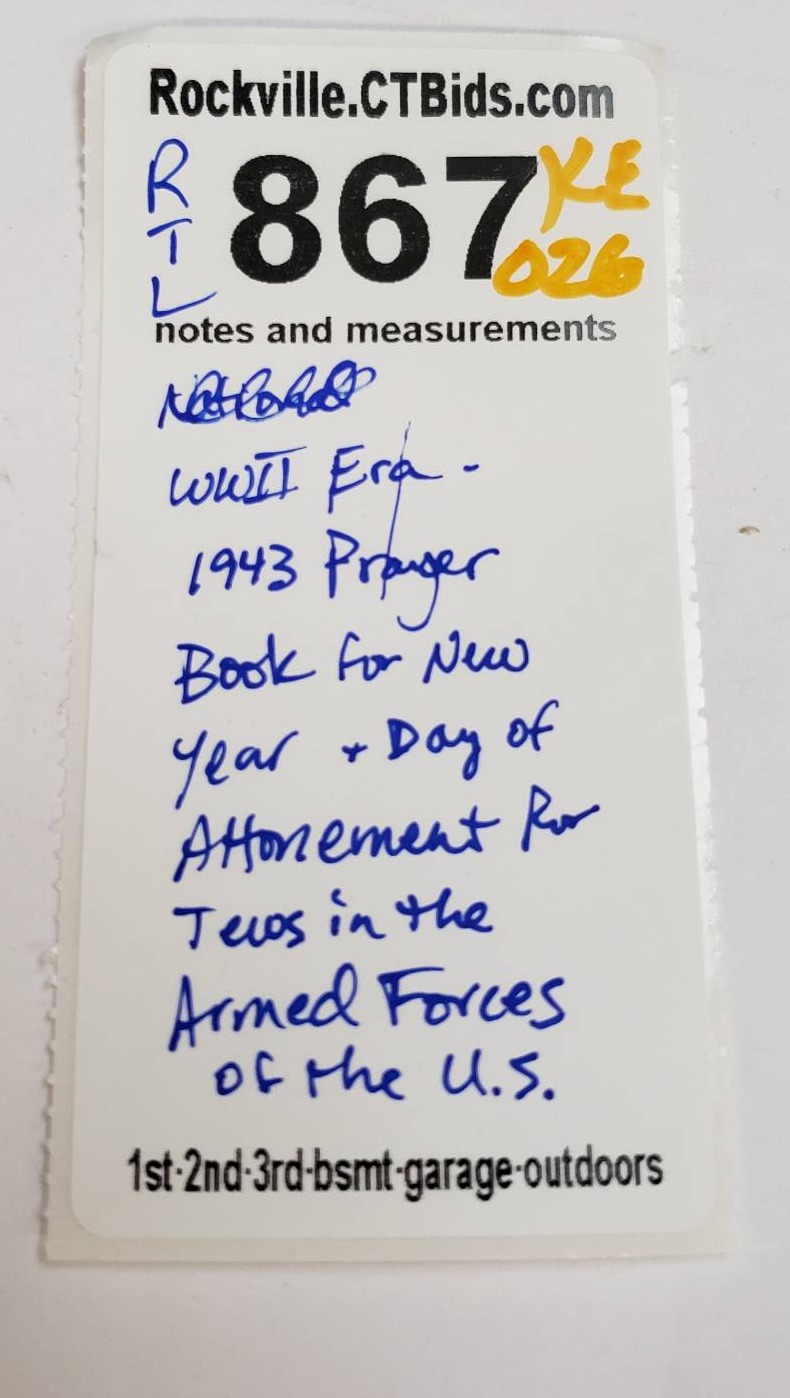 Rockville.CTBids.com
RTL
867
KE
026
notes and measurements
WWII Era -
1943 Prayer
Book for New
Year + Day of
Attonement for
Jews in the
Armed Forces
of the U.S.
1st-2nd-3rd-bsmt-garage-outdoors